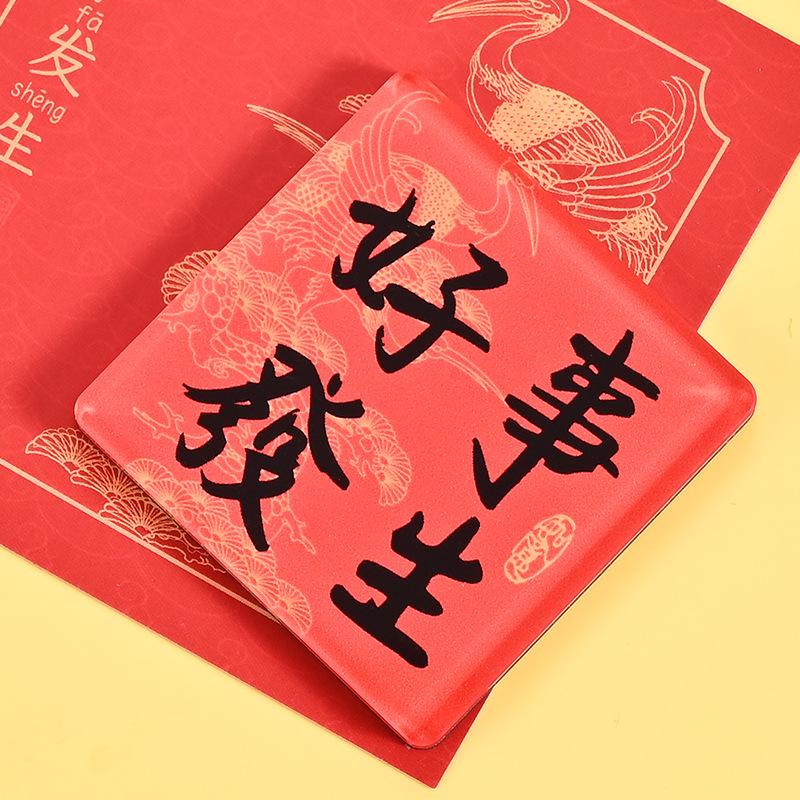 好事
發生
fā
发
shēng
生